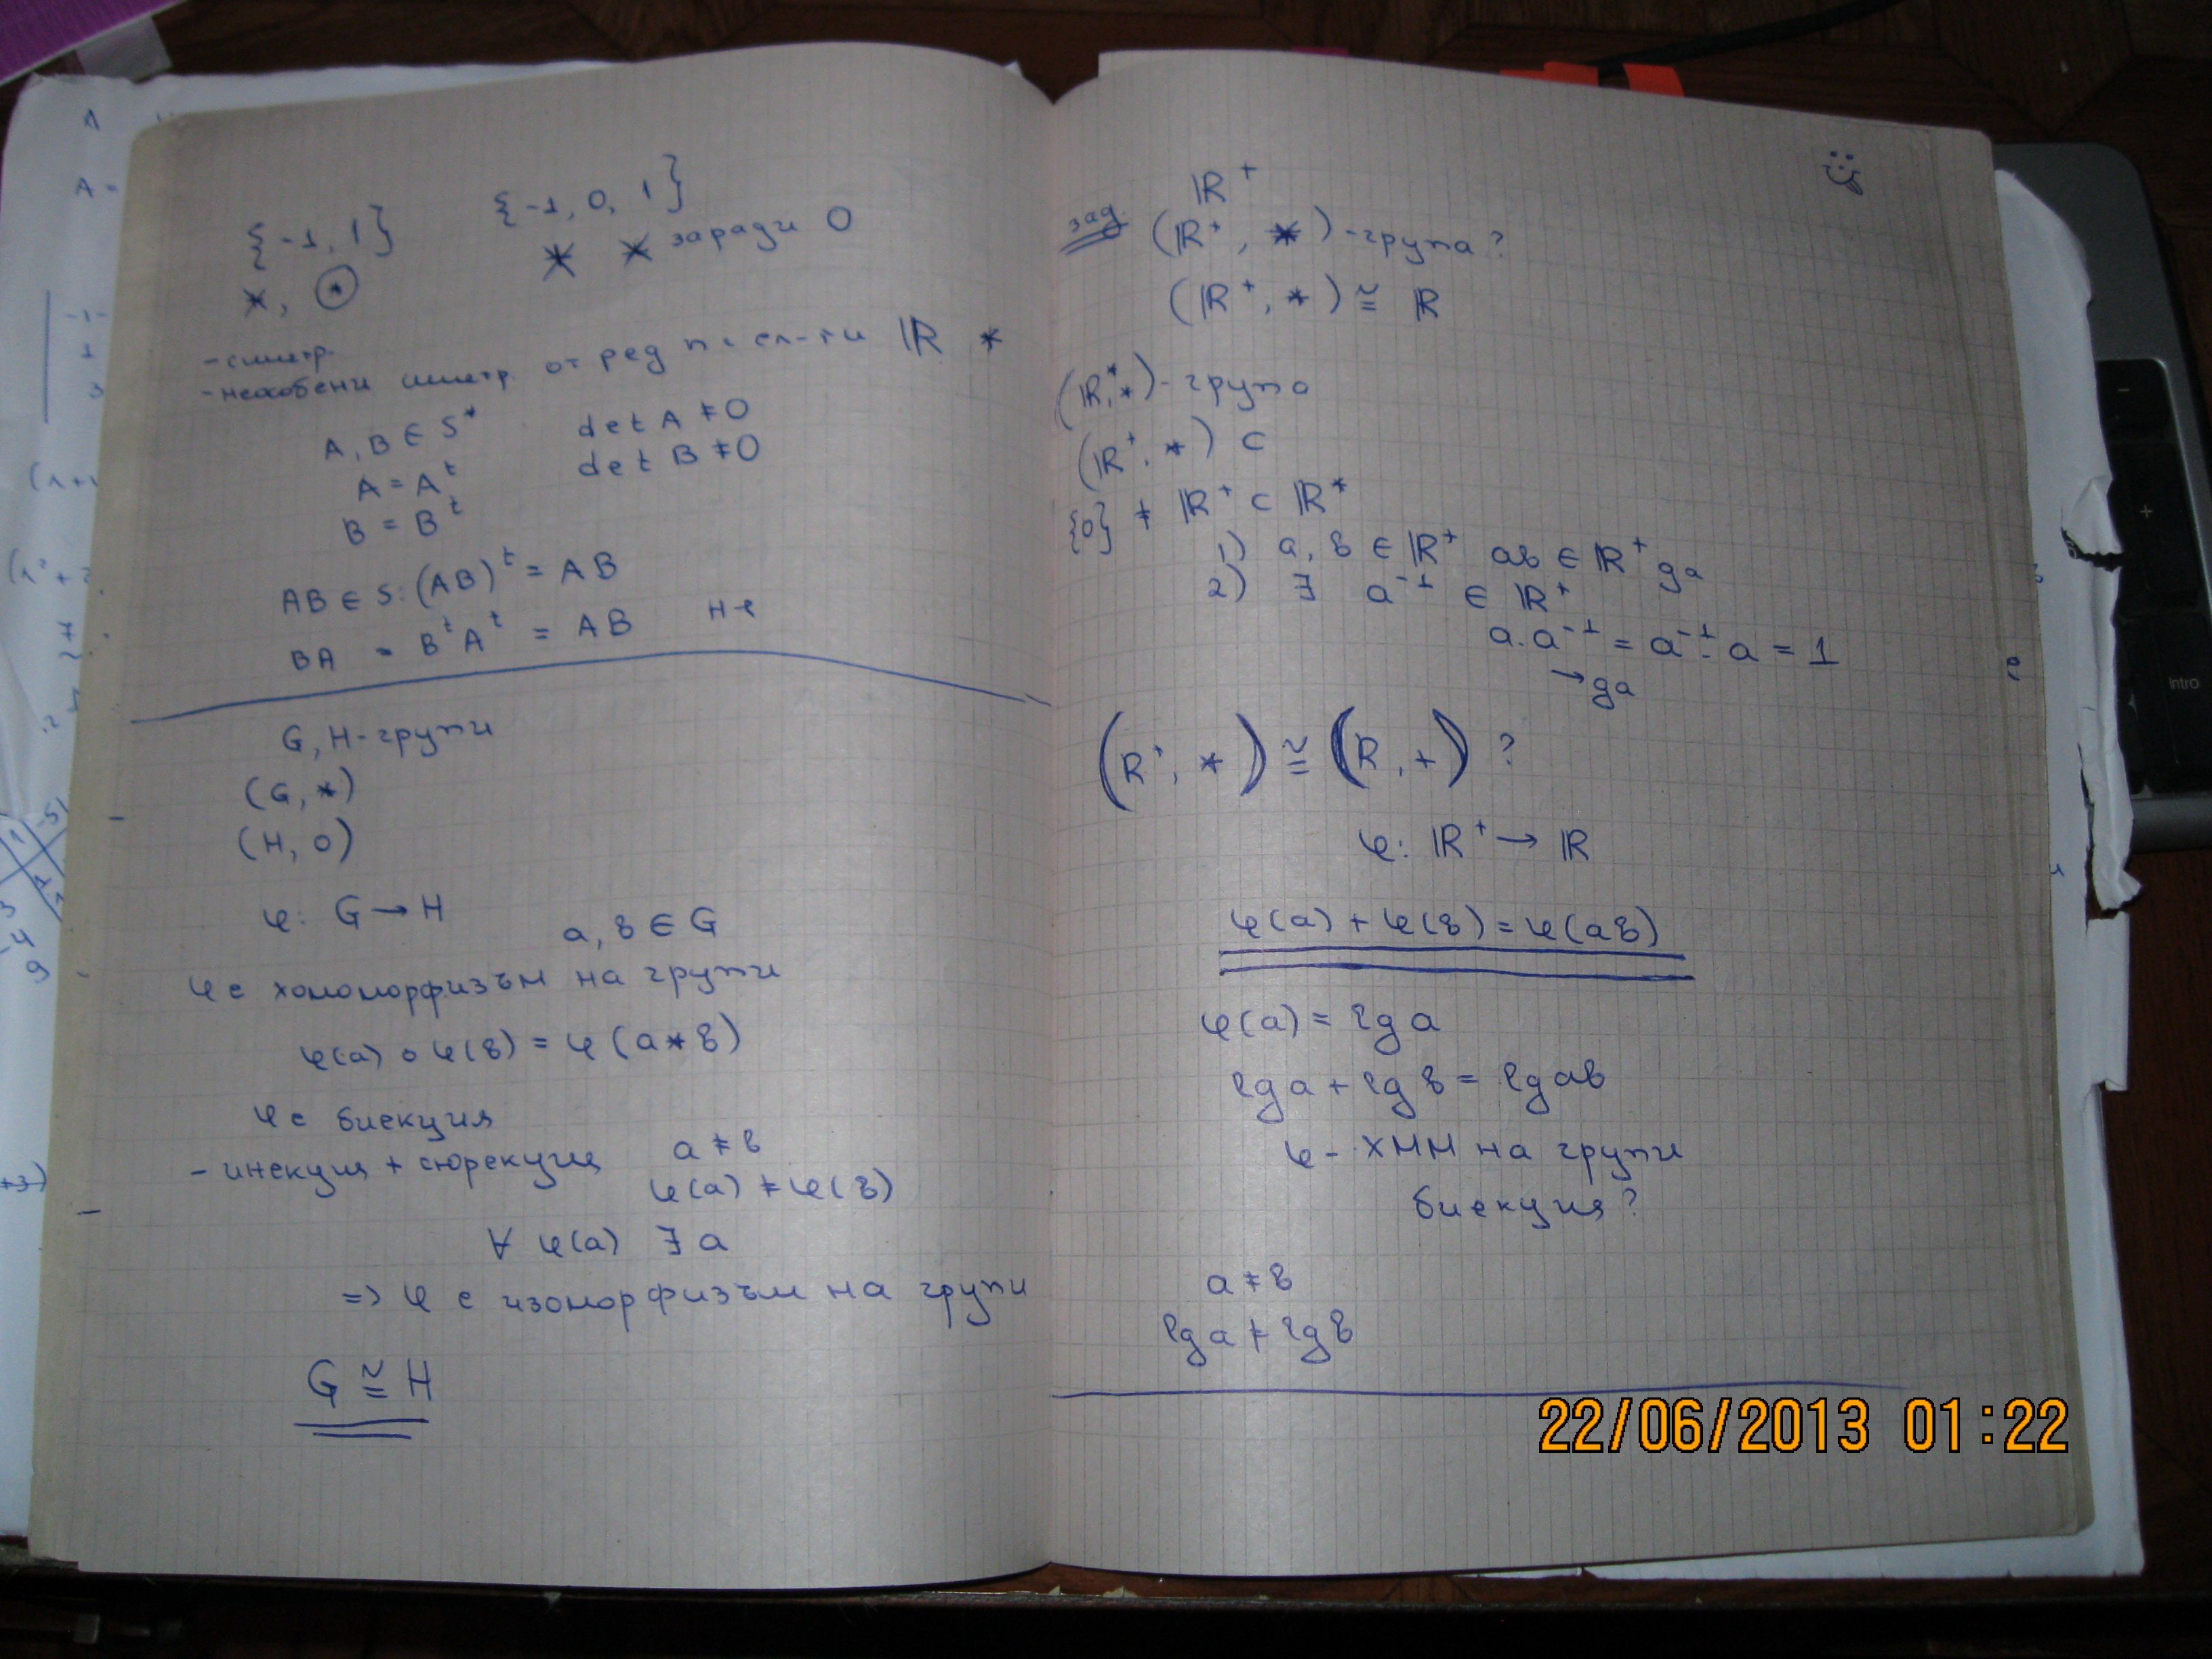 {-1, 1}
*, ⊛
{-1, 0, 1}
* * заради 0
-симетр.
-неособени симетр. от ред n с ел-ти ℝ *
A, B ∈ S* det A ≠ 0
A = Aᵗ det B ≠ 0
B = Bᵗ
AB ∈ S: (AB)ᵗ = AB
BA = BᵗAᵗ = AB не
G, H - групи
(G, *)
(H, o)
φ: G → H
a, b ∈ G
φ е хомоморфизъм на групи
φ(a) o φ(b) = φ(a * b)
φ е биекция
- инекция + сюрекция a ≠ b
φ(a) ≠ φ(b)
∀ φ(a) ∃ a
=> φ е изоморфизъм на групи
G ≅ H
ℝ⁺
зад. (ℝ⁺, *) - група?
(ℝ⁺, *) ≅ ℝ
(ℝ*, *) - група
(ℝ⁺, *) ⊂
{0} ≠ ℝ⁺ ⊂ ℝ*
1) a, b ∈ ℝ⁺ ab ∈ ℝ⁺ да
2) ∃ a⁻¹ ∈ ℝ⁺
a.a⁻¹ = a⁻¹.a = 1
→ да
(R⁺, *) ≅ (R, +) ?
φ: ℝ⁺ → ℝ
φ(a) + φ(b) = φ(ab)
φ(a) = lg a
lg a + lg b = lg ab
φ - ХММ на групи
биекция?
a ≠ b
lg a ≠ lg b
22/06/2013 01:22
Intro